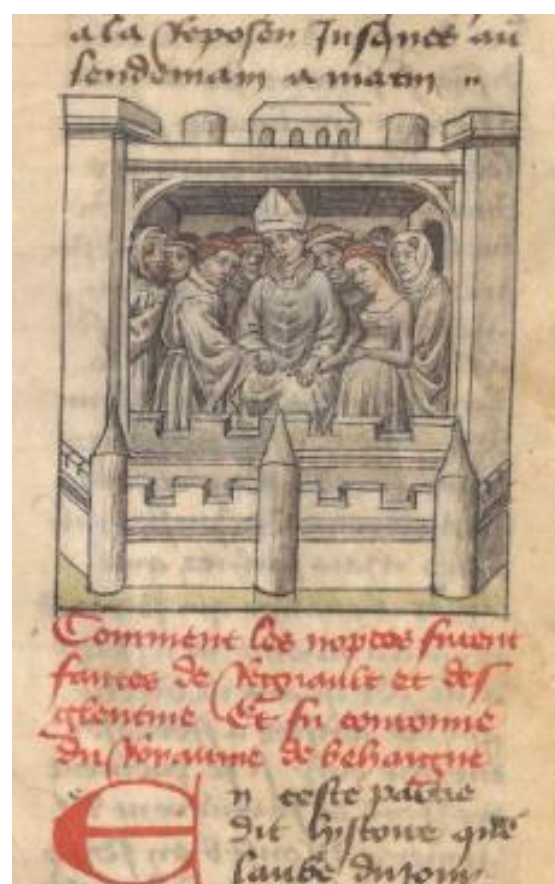 a la Reposer Jusques au
lendemain a matin
Comment les nopces furent
faictes de Regnault et des
glentine Et fu couronne
du Royaume de behaigne
En ceste partie
dit lystoire que
laube du jour